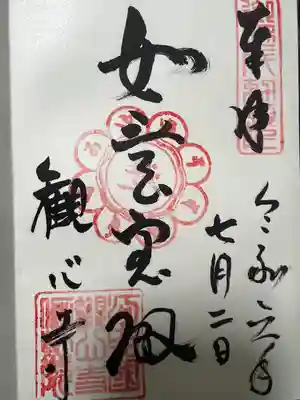 奉拝
令和六年
七月二日
如意宝殿
観心寺